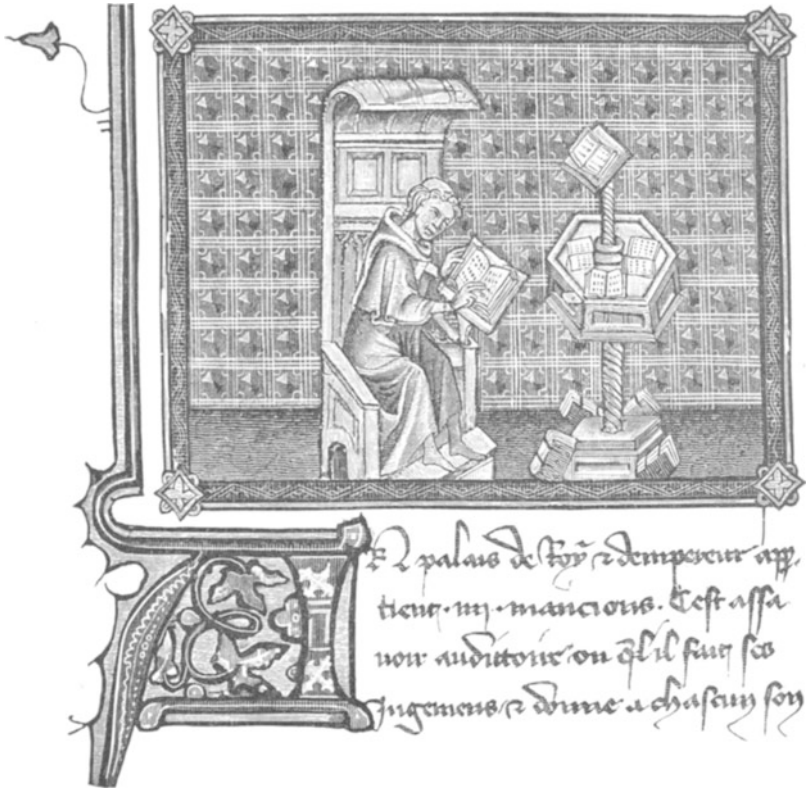 palais de Roy & dempereur app.
tient .iii. mancions. Cest assa
uoir auditoire ou ql il fait ses
Jugemens. & donne a chascun son